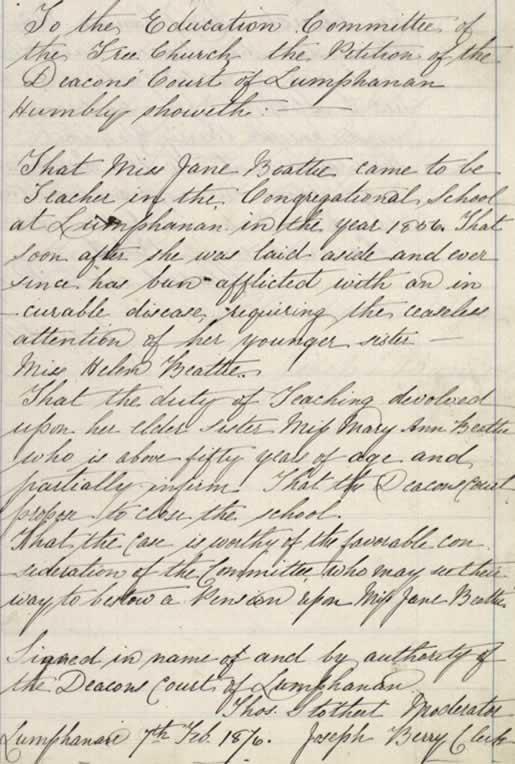 To the Education Committee of
the Free Church the Petition of the
Deacons' Court of Lumphanan
Humbly showeth: —
That Miss Jane Beattie came to be
Teacher in the Congregational School
at Lumphanan in the year 1856. That
soon after she was laid aside and ever
since has been afflicted with an in
-curable disease, requiring the ceaseless
attention of her younger sister —
Miss Helen Beattie.
That the duty of Teaching devolved
upon her elder sister Miss Mary Ann Beattie
who is above fifty years of age and
partially infirm. That the Deacons Court
propose to close the school.
That the case is worthy of the favorable con
-sideration of the Committee, who may see their
way to bestow a Pension upon Miss Jane Beattie.
Signed in name of and by authority of
the Deacons Court of Lumphanan
Thos. Stothert Moderator
Lumphanan 7th Feb. 1876. Joseph Berry Clerk